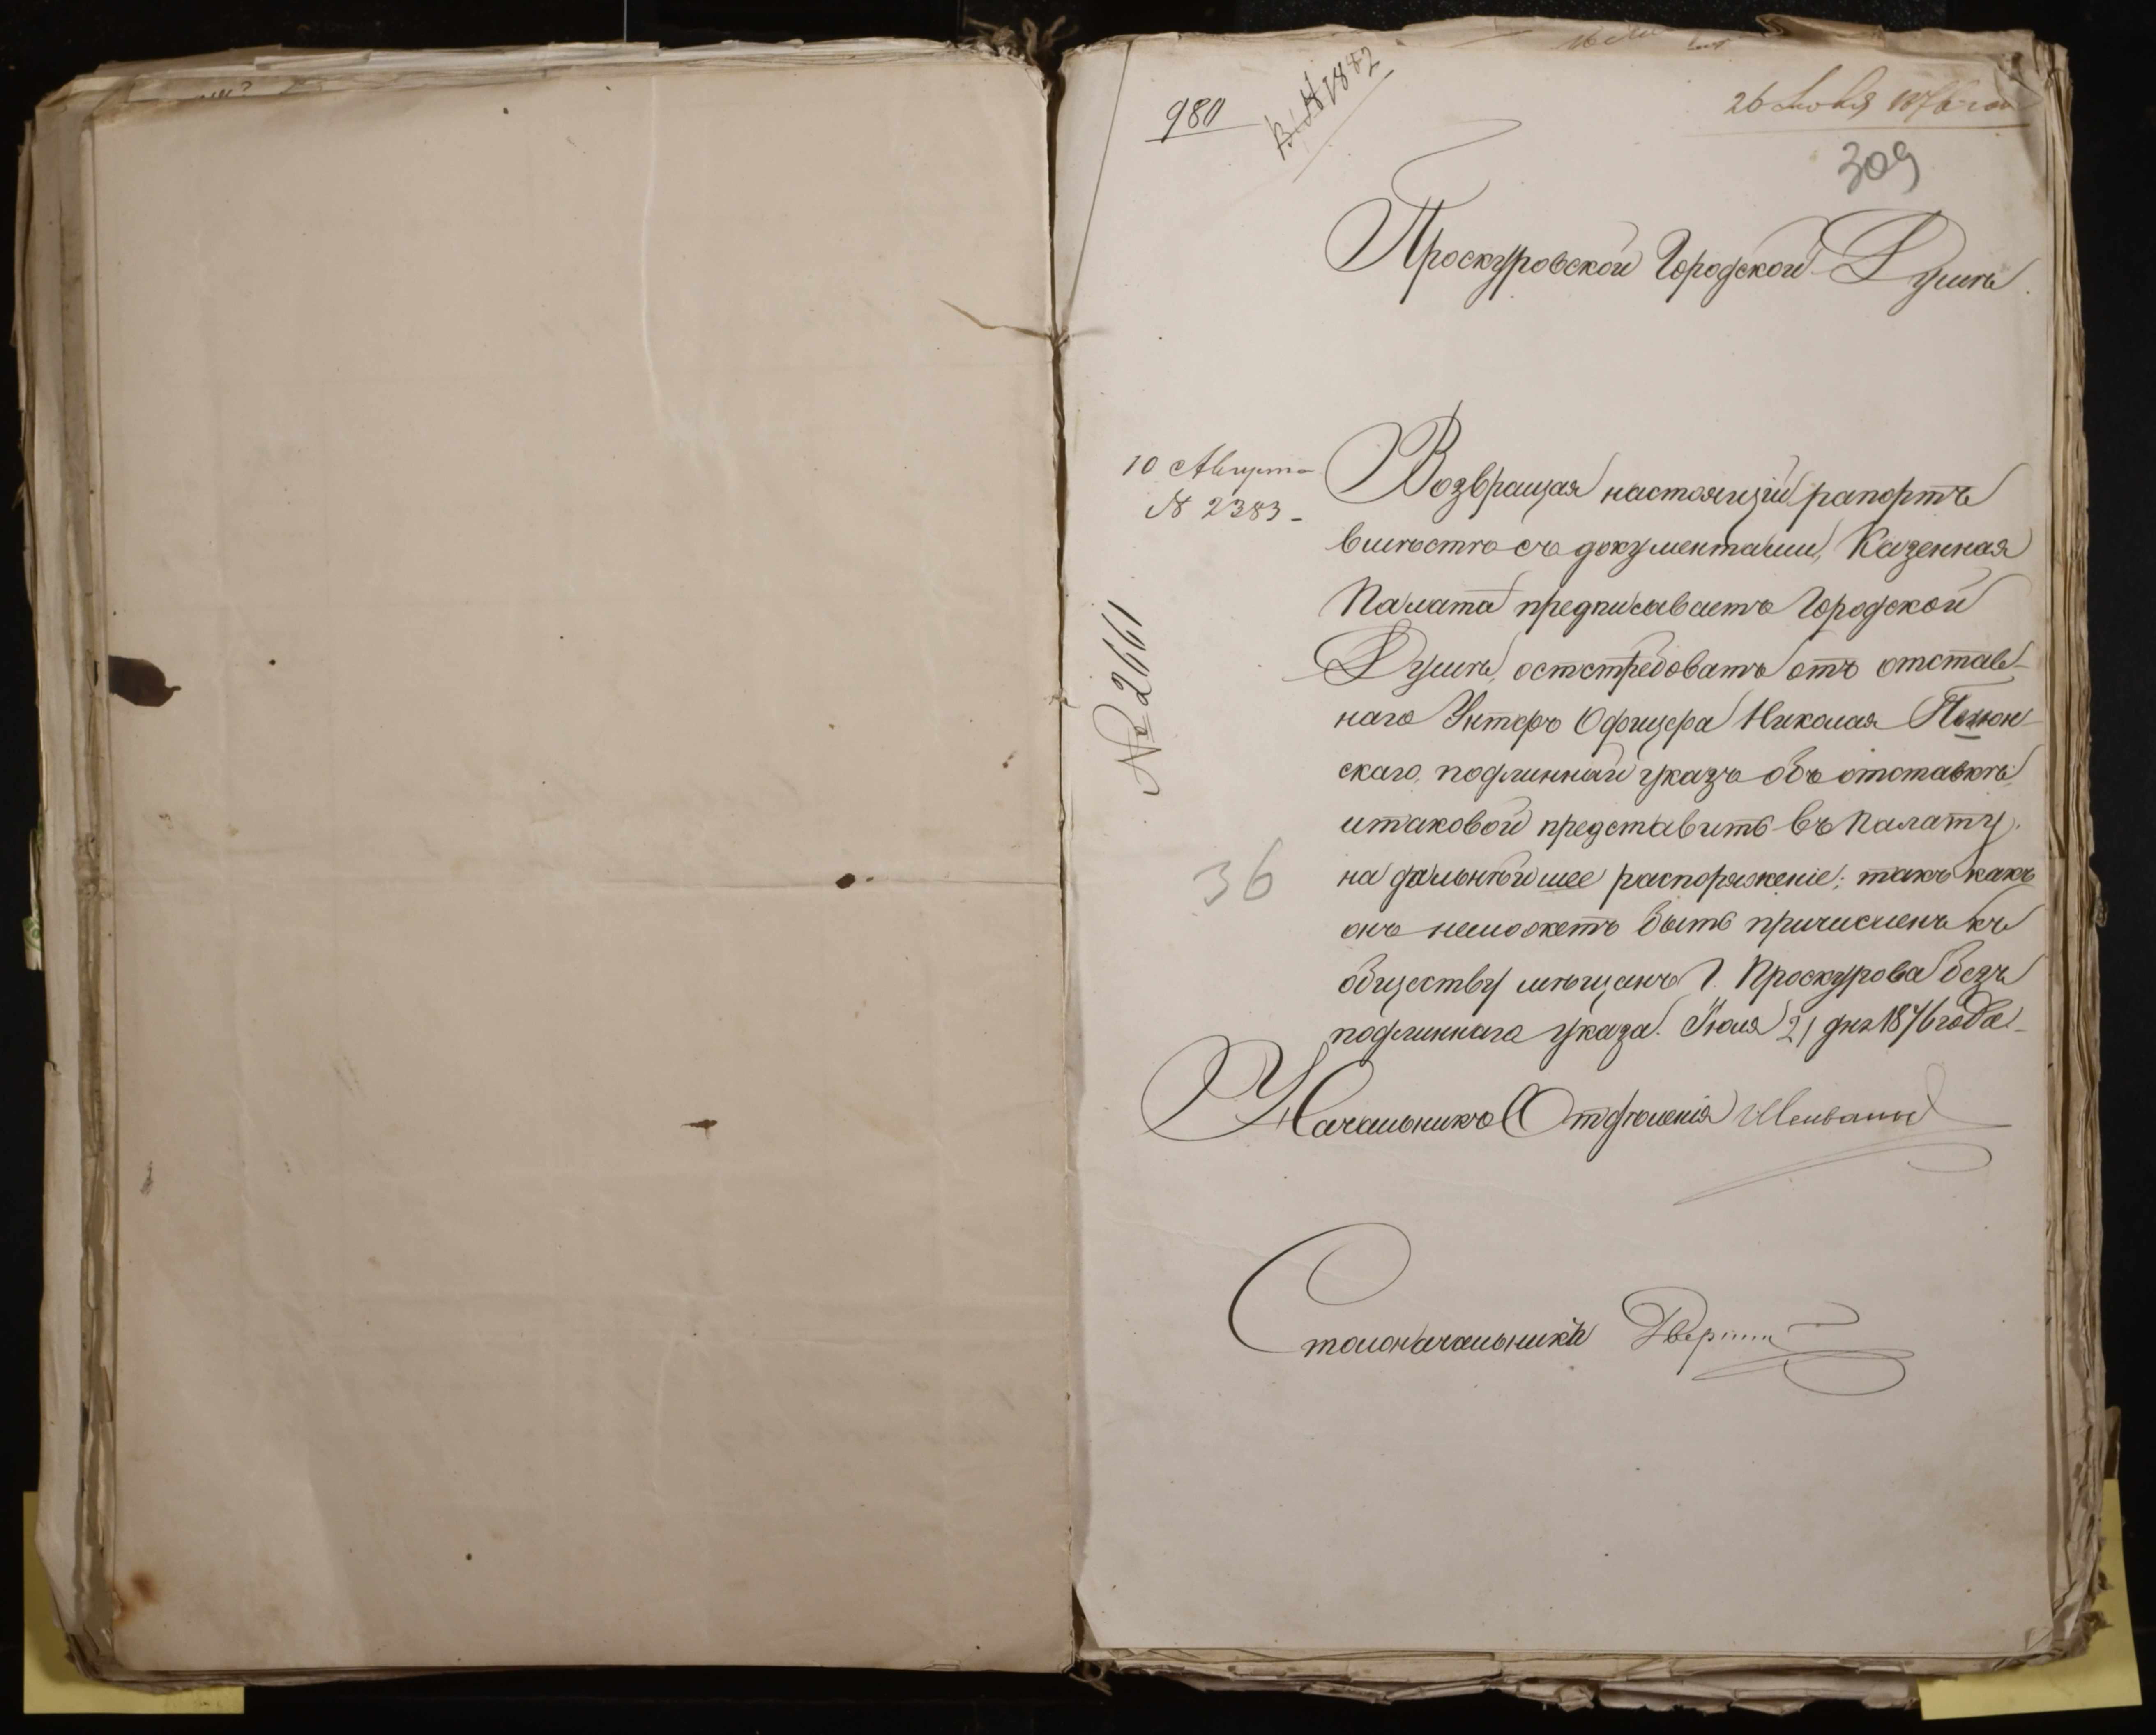 980
26 Июля 1876 года
309
Проскуровской Городской Думѣ.
10 Августа
№ 2383 -
Возвращая настоящій рапортъ
вмѣстѣ съ документами, Казенная
Палата предписываетъ Городской
Думѣ, остстребовать отъ отстав-
наго Унтеръ Офицера Николая
скаго, подлинный указъ объ отставкѣ,
и таковой представить въ Палату.
на дальнѣйшее распоряженіе; такъ какъ
онъ неможетъ быть причисленъ къ
обществу мѣщанъ Г. Проскурова безъ
подлиннаго указа. Июля 21 дня 1876 года.
№ 2661
36
Начальникъ Отдѣленія
Столоначальникъ